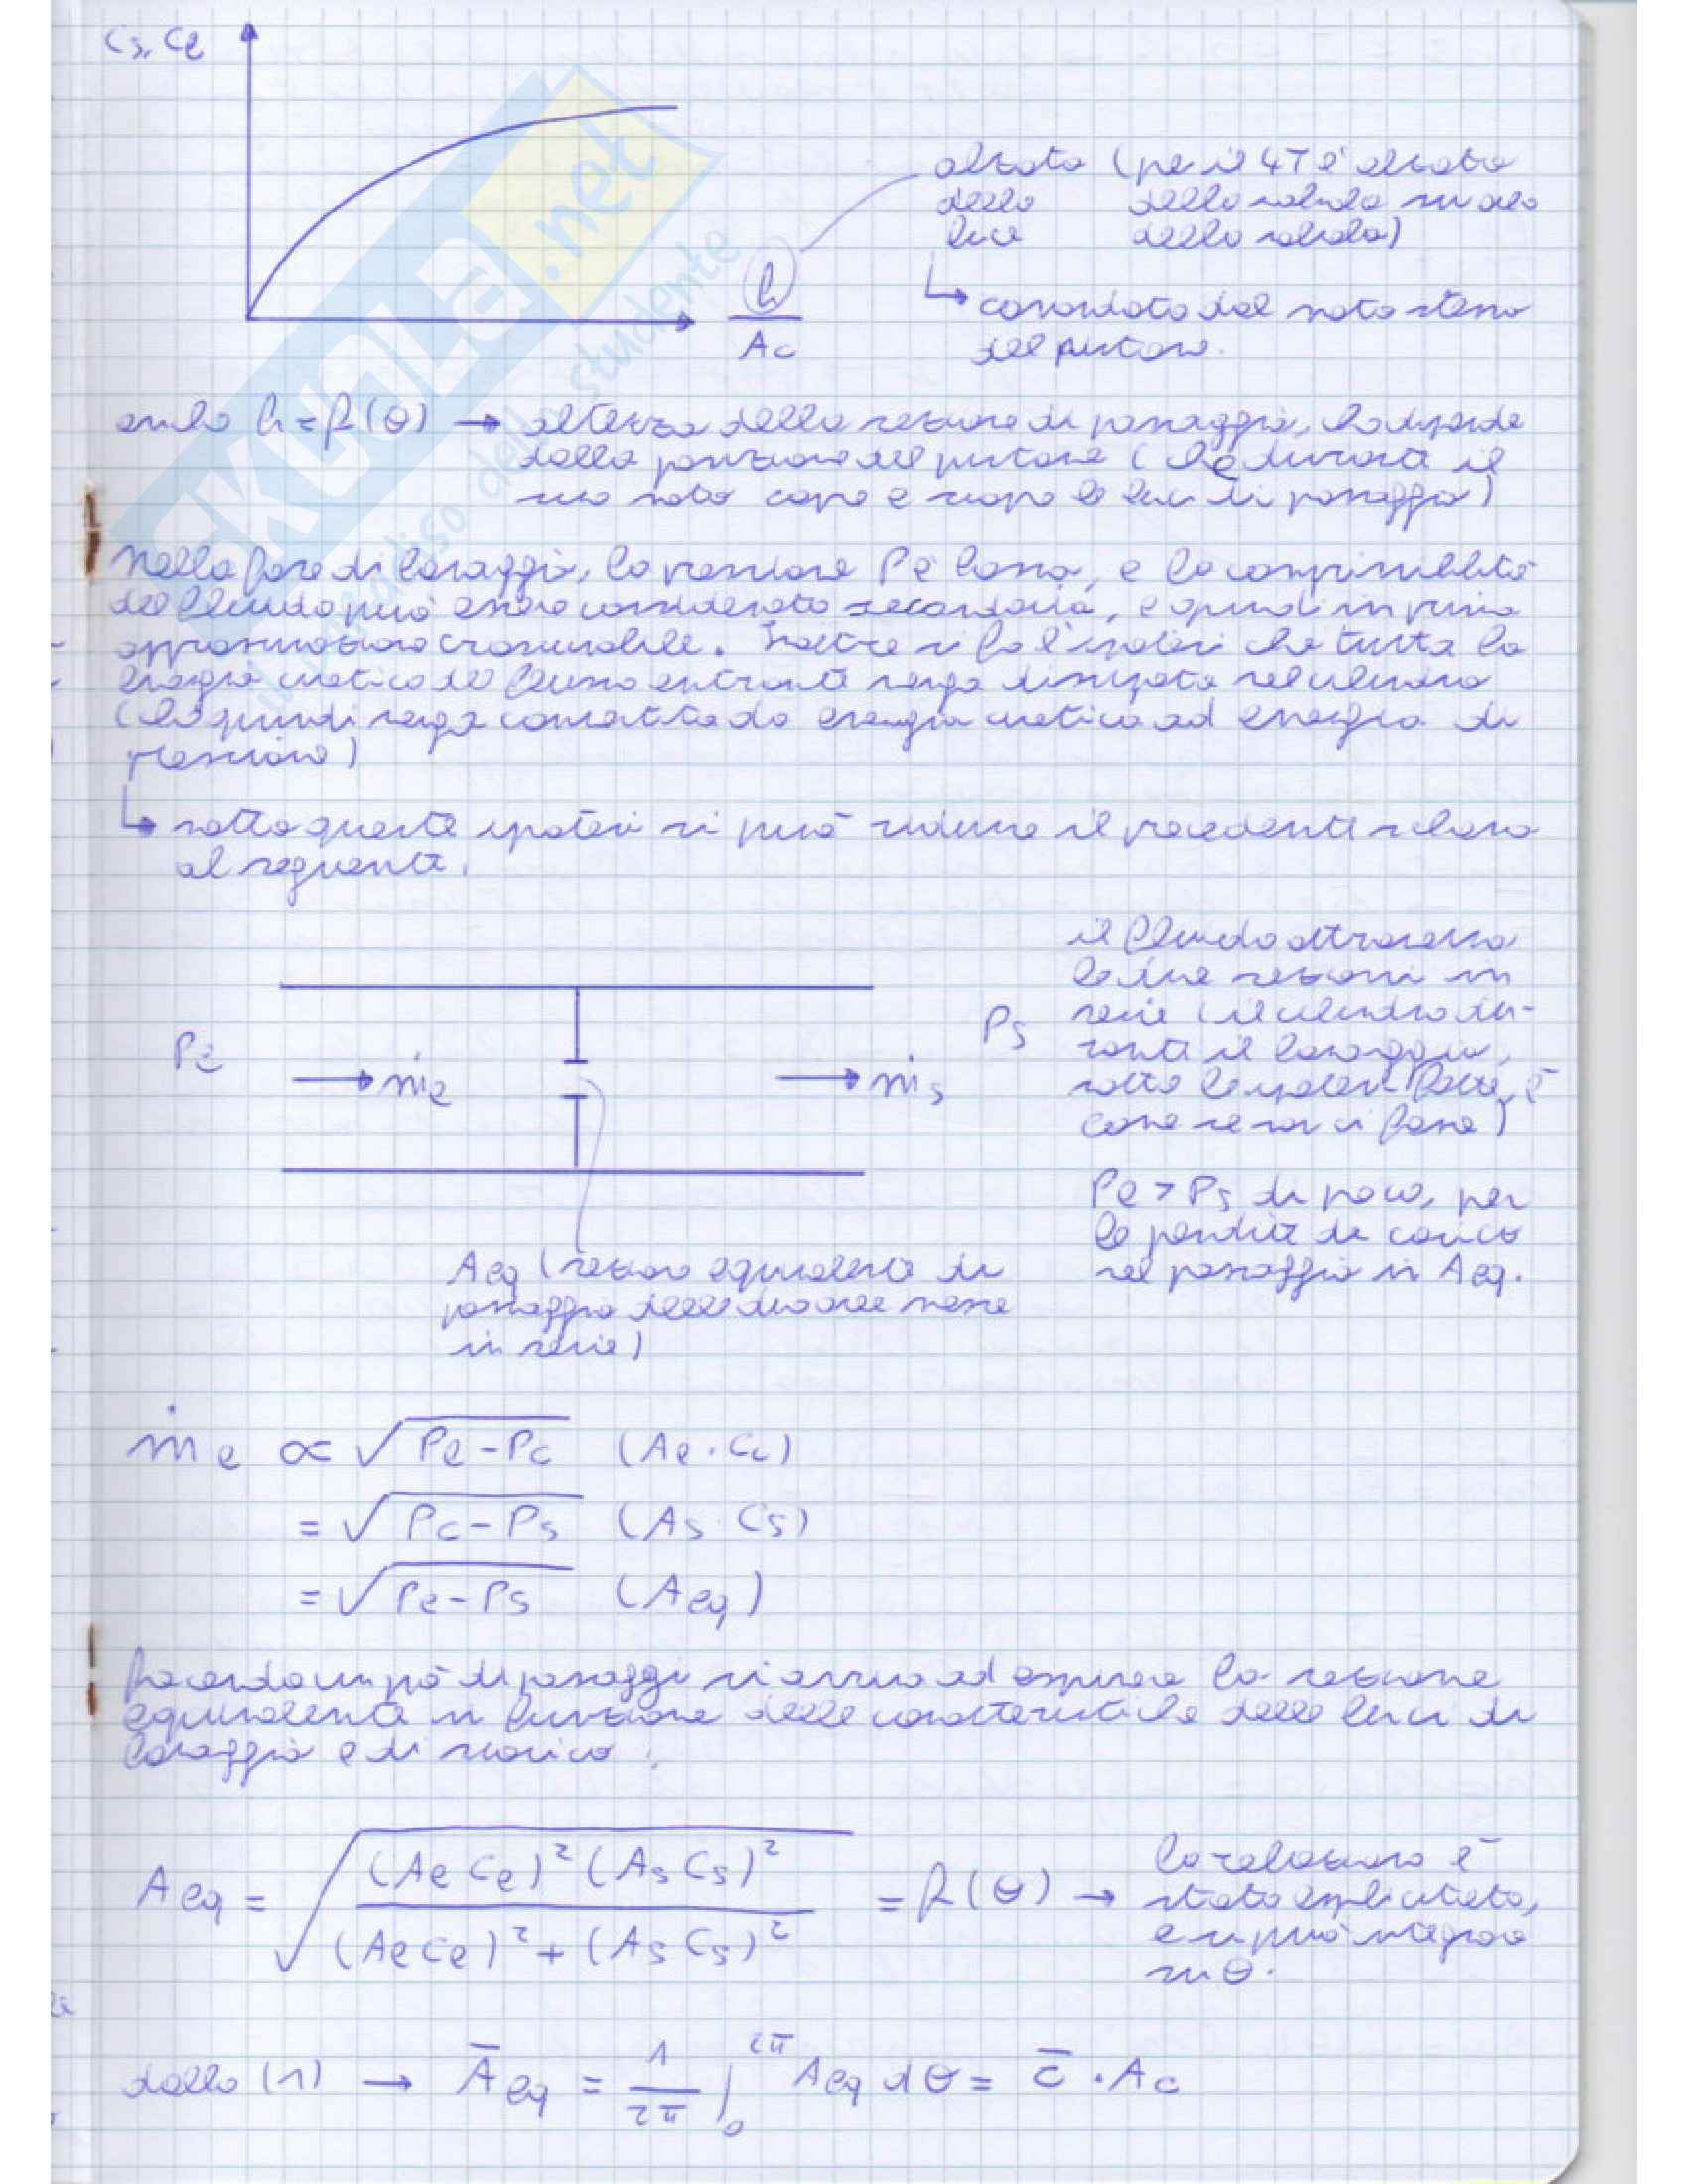 Cs, Ce
alzata (per il 4T è alzata
della della valvola su
luce della valvola)
h
Ac
↳ comandata dal moto stesso
del pistone.
anche h = f(θ) → altezza della sezione di passaggio, che dipende
dalla posizione del pistone (che durante il
suo moto copre e scopre le luci di passaggio)
Nella fase di lavaggio, la pressione P è bassa, e la comprimibilità
del fluido può essere considerata secondaria, e quindi in prima
approssimazione trascurabile. Inoltre si fa l'ipotesi che tutta la
energia cinetica del flusso entrante venga dissipata nel cilindro
(che quindi venga convertita da energia cinetica ad energia di
pressione)
↳ sotto queste ipotesi si può ridurre il precedente schema
al seguente.
il fluido attraversa
le due sezioni in
serie (il cilindro du-
rante il lavaggio,
sotto le ipotesi fatte, è
come se non ci fosse)
Pe
ṁe
ṁs
Ps
Pe > Ps di poco, per
le perdite di carico
nel passaggio in Aeq.
Aeq (sezione equivalente di
passaggio delle due aree messe
in serie)
ṁe ∝ √(Pe - Pc) (Ae · Cc)
= √(Pc - Ps) (As · Cs)
= √(Pe - Ps) (Aeq)
facendo un pò di passaggi si arriva ad esprimere la sezione
equivalente in funzione delle caratteristiche delle luci di
lavaggio e di scarico.
Aeq = √((Ae Ce)² (As Cs)² / ((Ae Ce)² + (As Cs)²)) = f(θ) → la relazione è
stata esplicitata,
e si può integrare
in θ.
dalla (1) → Āeq = 1/2π ∫₀^2π Aeq dθ = c̄ · Ac
SKUOLA.net
il paradiso dello studente